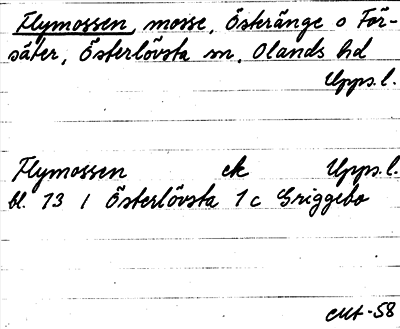 Flymossen, mosse, Österänge o För-
säter, Österlövsta sn, Olands hd
Upps.l.
Flymossen ek Upps.l.
bl. 13 I Österlövsta 1 c Griggebo
CMt-58